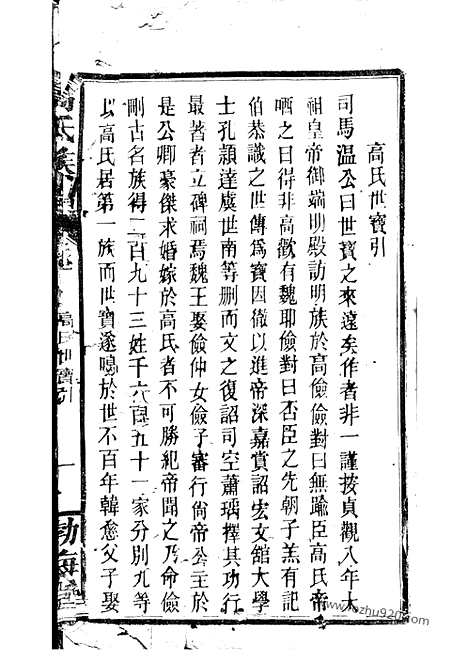 高氏世寶引
司馬温公曰世寶之來遠矣作者非一謹按貞觀八年太
祖皇帝御端明殿訪明族於高儉儉對曰無踰臣高氏帝
哂之曰得非高歡有魏耶儉對曰否臣之先朝子羔有記
伯恭識之世傳爲寶因徹以進帝深嘉賞詔宏文館大學
士孔頴達虞世南等删而文之復詔司空蕭瑀擇其功行
最著者立碑祠焉魏王娶儉仲女儉子審行尙帝公主於
是公卿豪傑求婚嫁於高氏者不可勝紀帝聞之乃命儉
刪古名族得二百九十三姓千六百五十一家分別九等
以高氏居第一族而世寶遂鳴於世不百年韓愈父子娶
高氏族譜
高氏世寶引
一
渤海堂
www.lozhu920.com